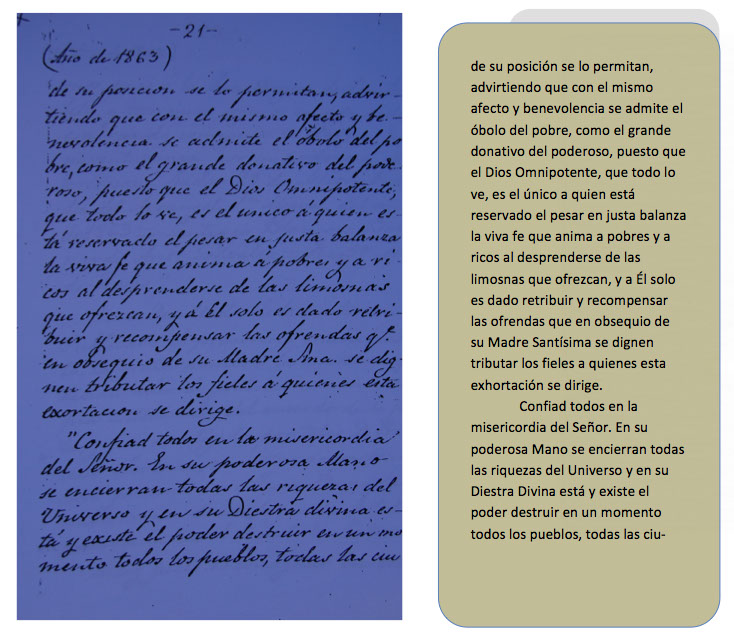 -21-
(Año de 1863)
de su posicion se lo permitan, advir-
tiendo que con el mismo afecto y be-
nevolencia se admite el óbolo del po
bre, como el grande donativo del pode-
roso, puesto que el Dios Omnipotente,
que todo lo ve, es el unico á quien es-
tá reservado el pesar en justa balanza
la viva fe que anima á pobres y a ri-
cos al desprenderse de las limosnas
que ofrezcan, y á El solo es dado retri-
buir y recompensar las ofrendas q.e
en obsequio de su Madre Sma. se dig-
nen tributar los fieles á quienes esta
exortacion se dirige.
"Confiad todos en la misericordia
del Señor. En su poderosa Mano
se encierran todas las riquezas del
Universo y en su Diestra divina es-
tá y existe el poder destruir en un mo
mento todos los pueblos, todas las ciu
de su posición se lo permitan,
advirtiendo que con el mismo
afecto y benevolencia se admite el
óbolo del pobre, como el grande
donativo del poderoso, puesto que
el Dios Omnipotente, que todo lo
ve, es el único a quien está
reservado el pesar en justa balanza
la viva fe que anima a pobres y a
ricos al desprenderse de las
limosnas que ofrezcan, y a Él solo
es dado retribuir y recompensar
las ofrendas que en obsequio de
su Madre Santísima se dignen
tributar los fieles a quienes esta
exhortación se dirige.
Confiad todos en la
misericordia del Señor. En su
poderosa Mano se encierran todas
las riquezas del Universo y en su
Diestra Divina está y existe el
poder destruir en un momento
todos los pueblos, todas las ciu-